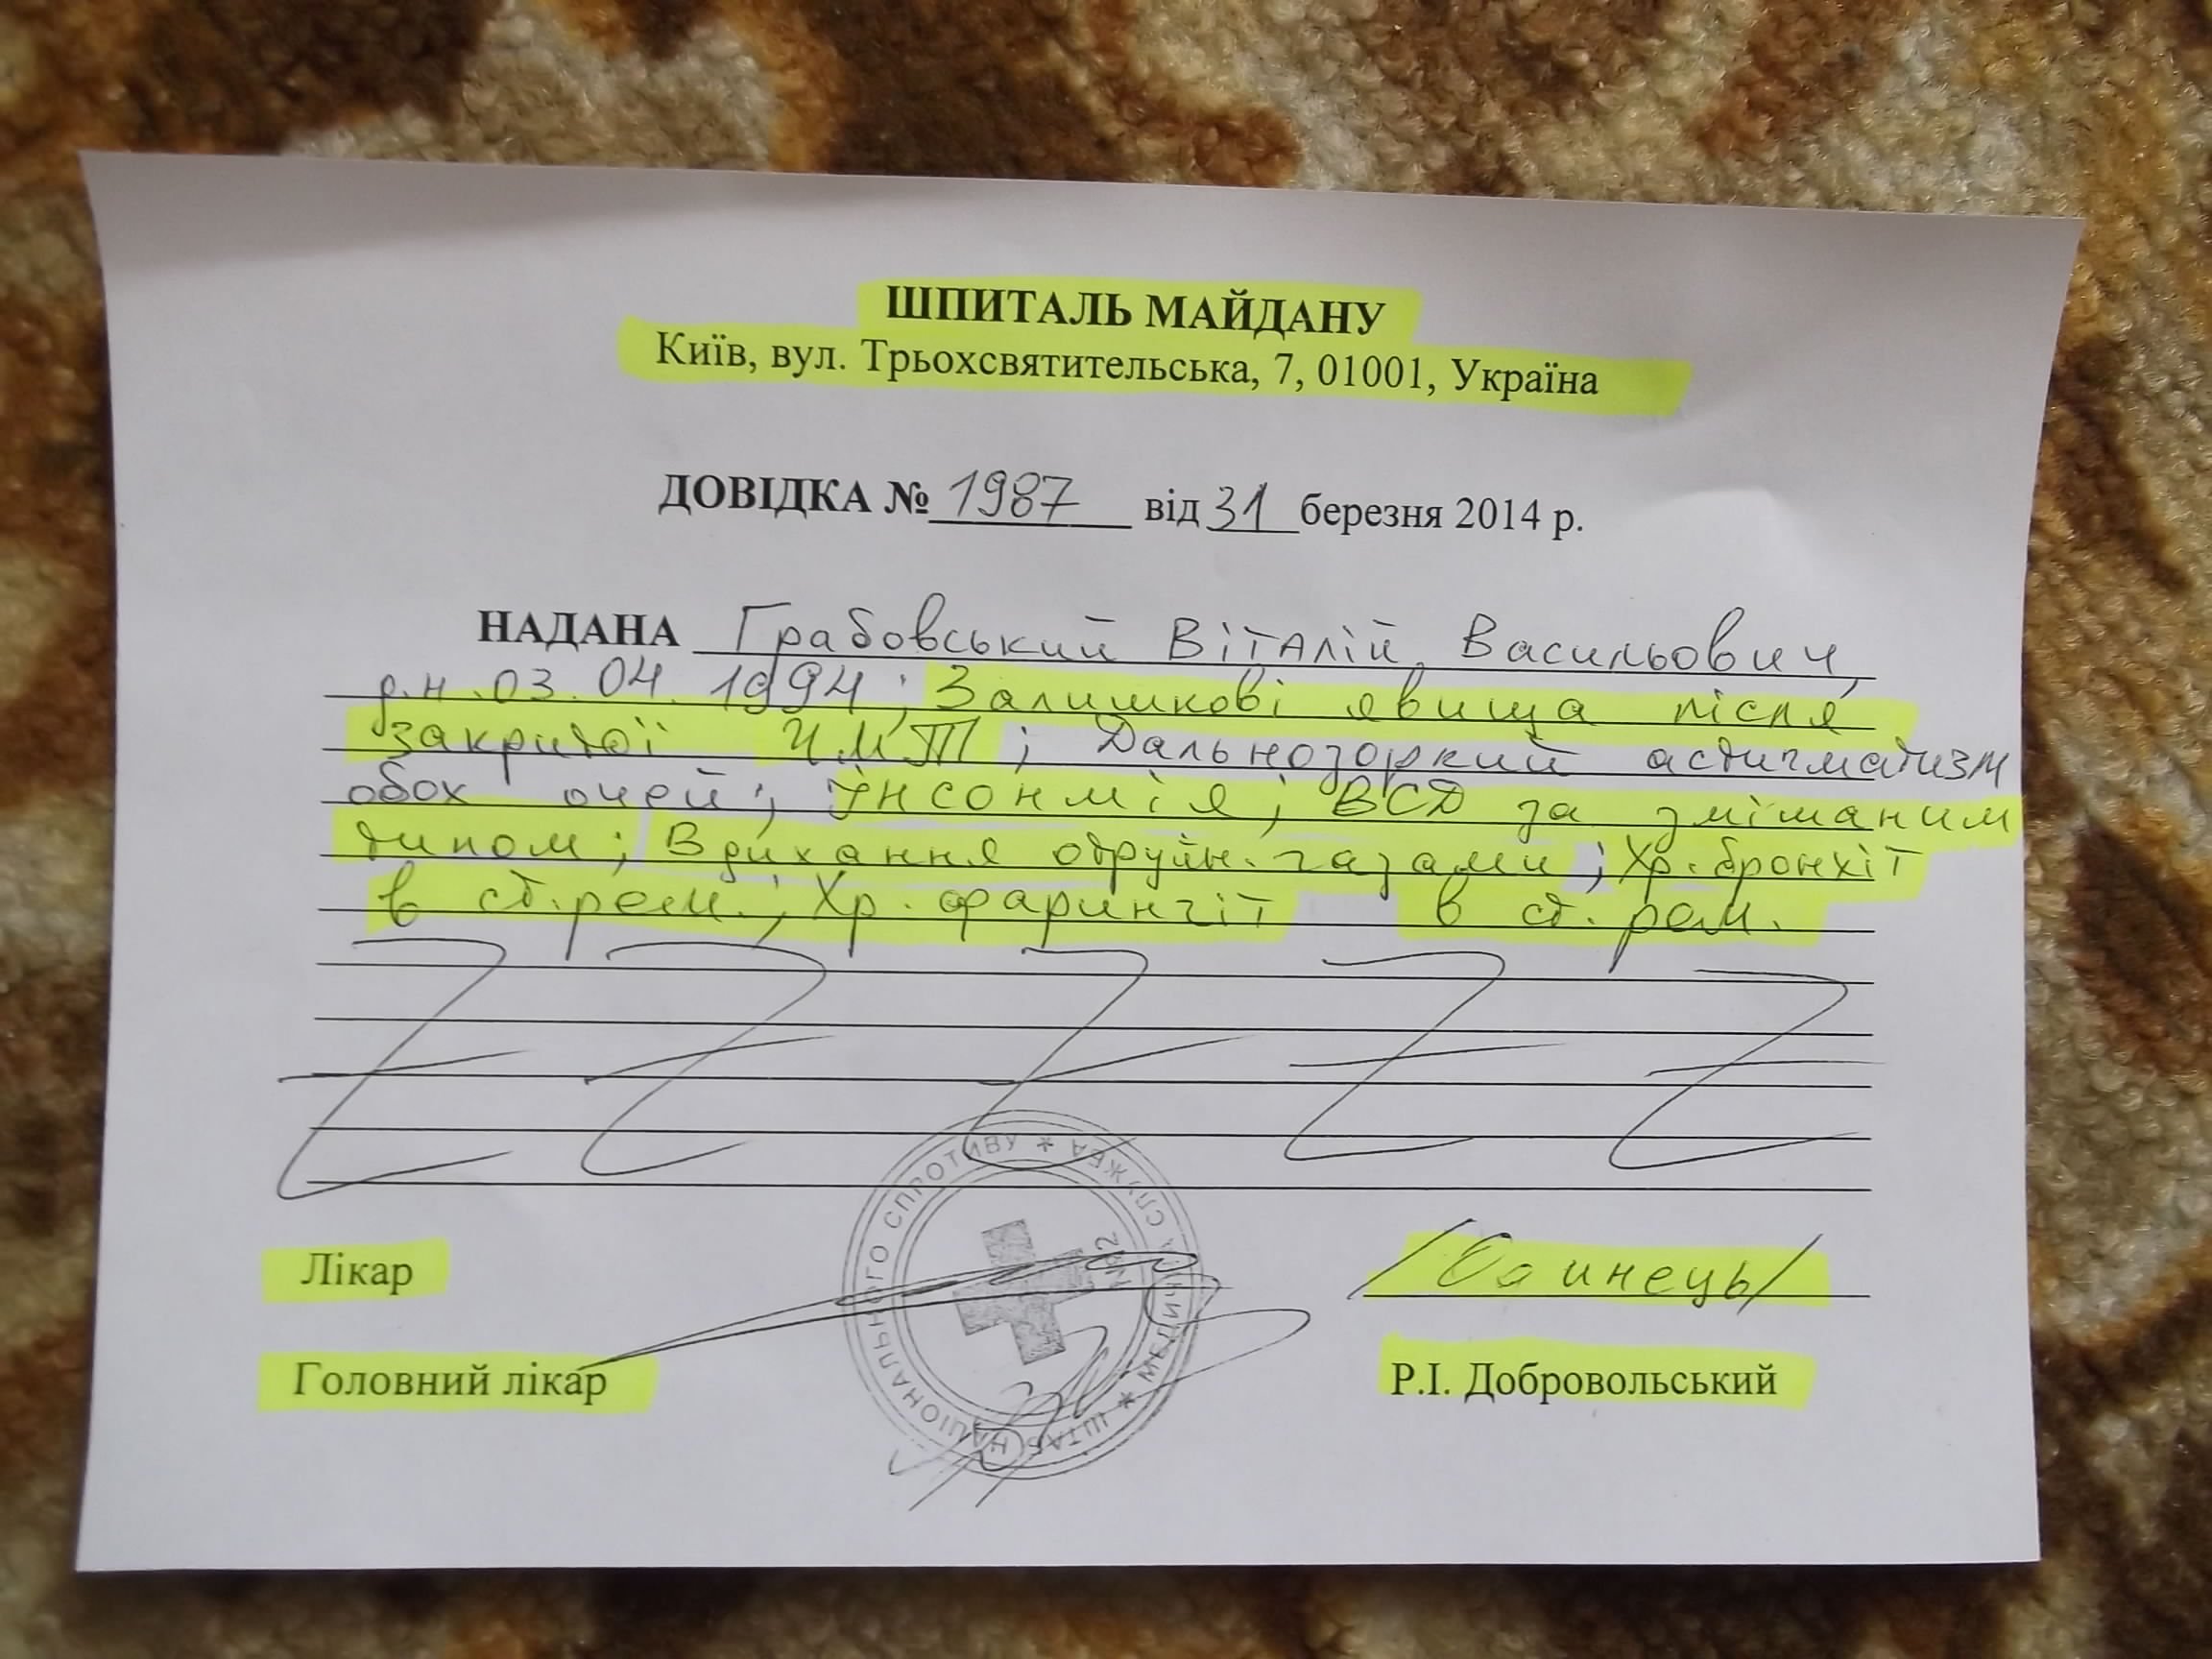 ШПИТАЛЬ МАЙДАНУ
Київ, вул. Трьохсвятительська, 7, 01001, Україна
ДОВІДКА № 1987 від 31 березня 2014 р.
НАДАНА Грабовський Віталій Васильович,
р.н. 03.04.1994; Залишкові явища після
закритої ЧМТ; Дальнозоркий астигматизм
обох очей; Інсомнія; ВСД за змішаним
типом; Вдихання отруйн. газами; Хр. бронхіт
в ст. рем.; Хр. фарингіт в ст. рем.
Лікар
Головний лікар Р.І. Добровольський
ШТАБ НАЦІОНАЛЬНОГО СПРОТИВУ * МЕДИЧНА СЛУЖБА *
№2